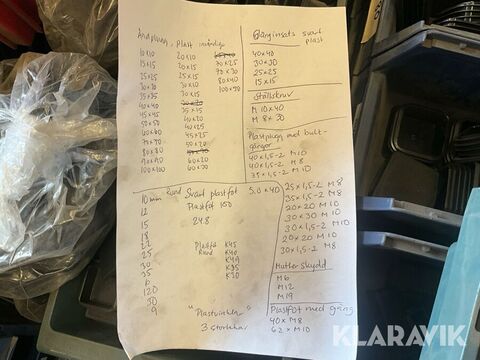 Ändplugg, Plast invändig
10x10
15x15
20x20
25x25
30x30
35x35
40x40
45x45
50x50
60x60
70x70
80x80
90x90
100x100
20x10
20x15
25x15
30x10
30x15
30x20
35x15
40x20
40x25
45x25
50x30
60x20
60x30
70x25
70x30
80x40
100x90
Gänginsats svart
plast
40x40
30x30
25x25
15x15
Ställskruv
M 10x40
M 8x30
Plastplugg med bult-
gängor
40x1,5-2 M10
40x1,5-2 M8
35x1,5-2 M10
25x1,5-2 M8
35x1,5-2 M8
20x20 M10
30x30 M10
30x1,5-2 M10
20x20 M10
30x1,5-2 M8
Mutter Skydd
M6
M12
M19
Plastfot med gäng
40x M8
62x M10
Rund Svart plastfot 50x40
10 mm
12
15
18
22
25
30
35
6
120
30
9
Plastfot 150
24.8
Plastfot
Rund
K45
K40
K49
K35
K30
"Plastvinklar"
3 storlekar
KLARAVIK